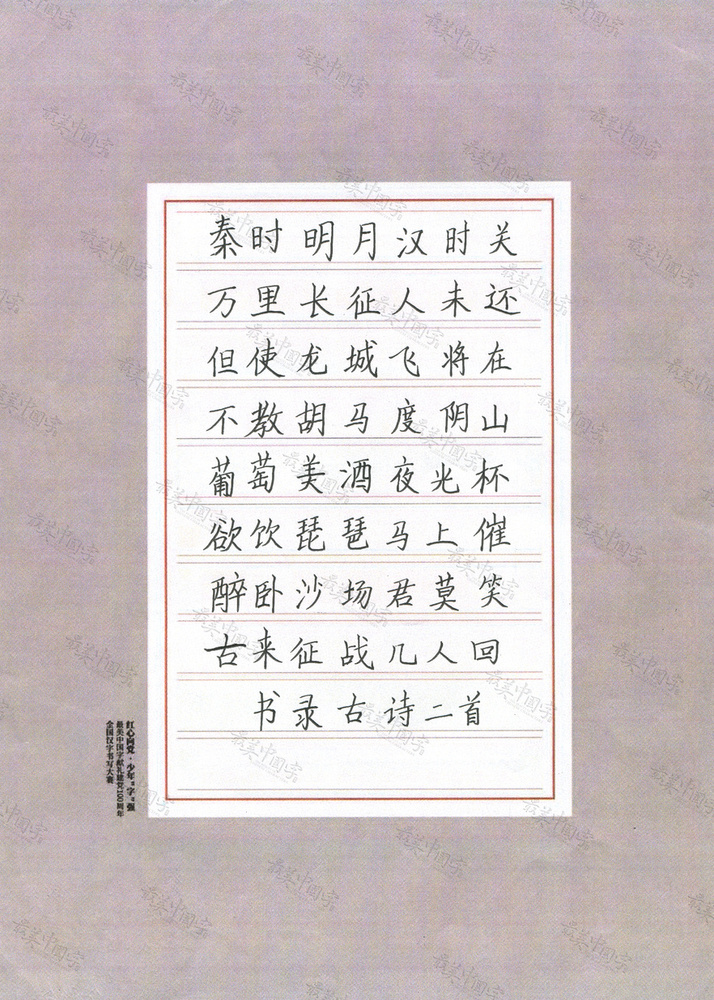 秦时明月汉时关
万里长征人未还
但使龙城飞将在
不教胡马度阴山
葡萄美酒夜光杯
欲饮琵琶马上催
醉卧沙场君莫笑
古来征战几人回
书录古诗二首
红心向党·少年“字”强
最美中国字献礼建党100周年
全国汉字书写大赛
最美中国字